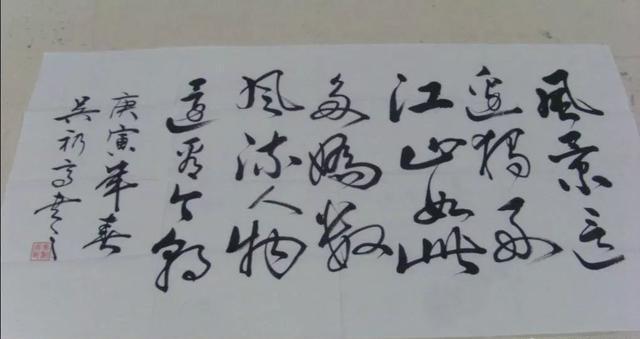 風景這
邊獨好
江山如此
多嬌數
風流人物
還看今朝
庚寅年春
吳初高書